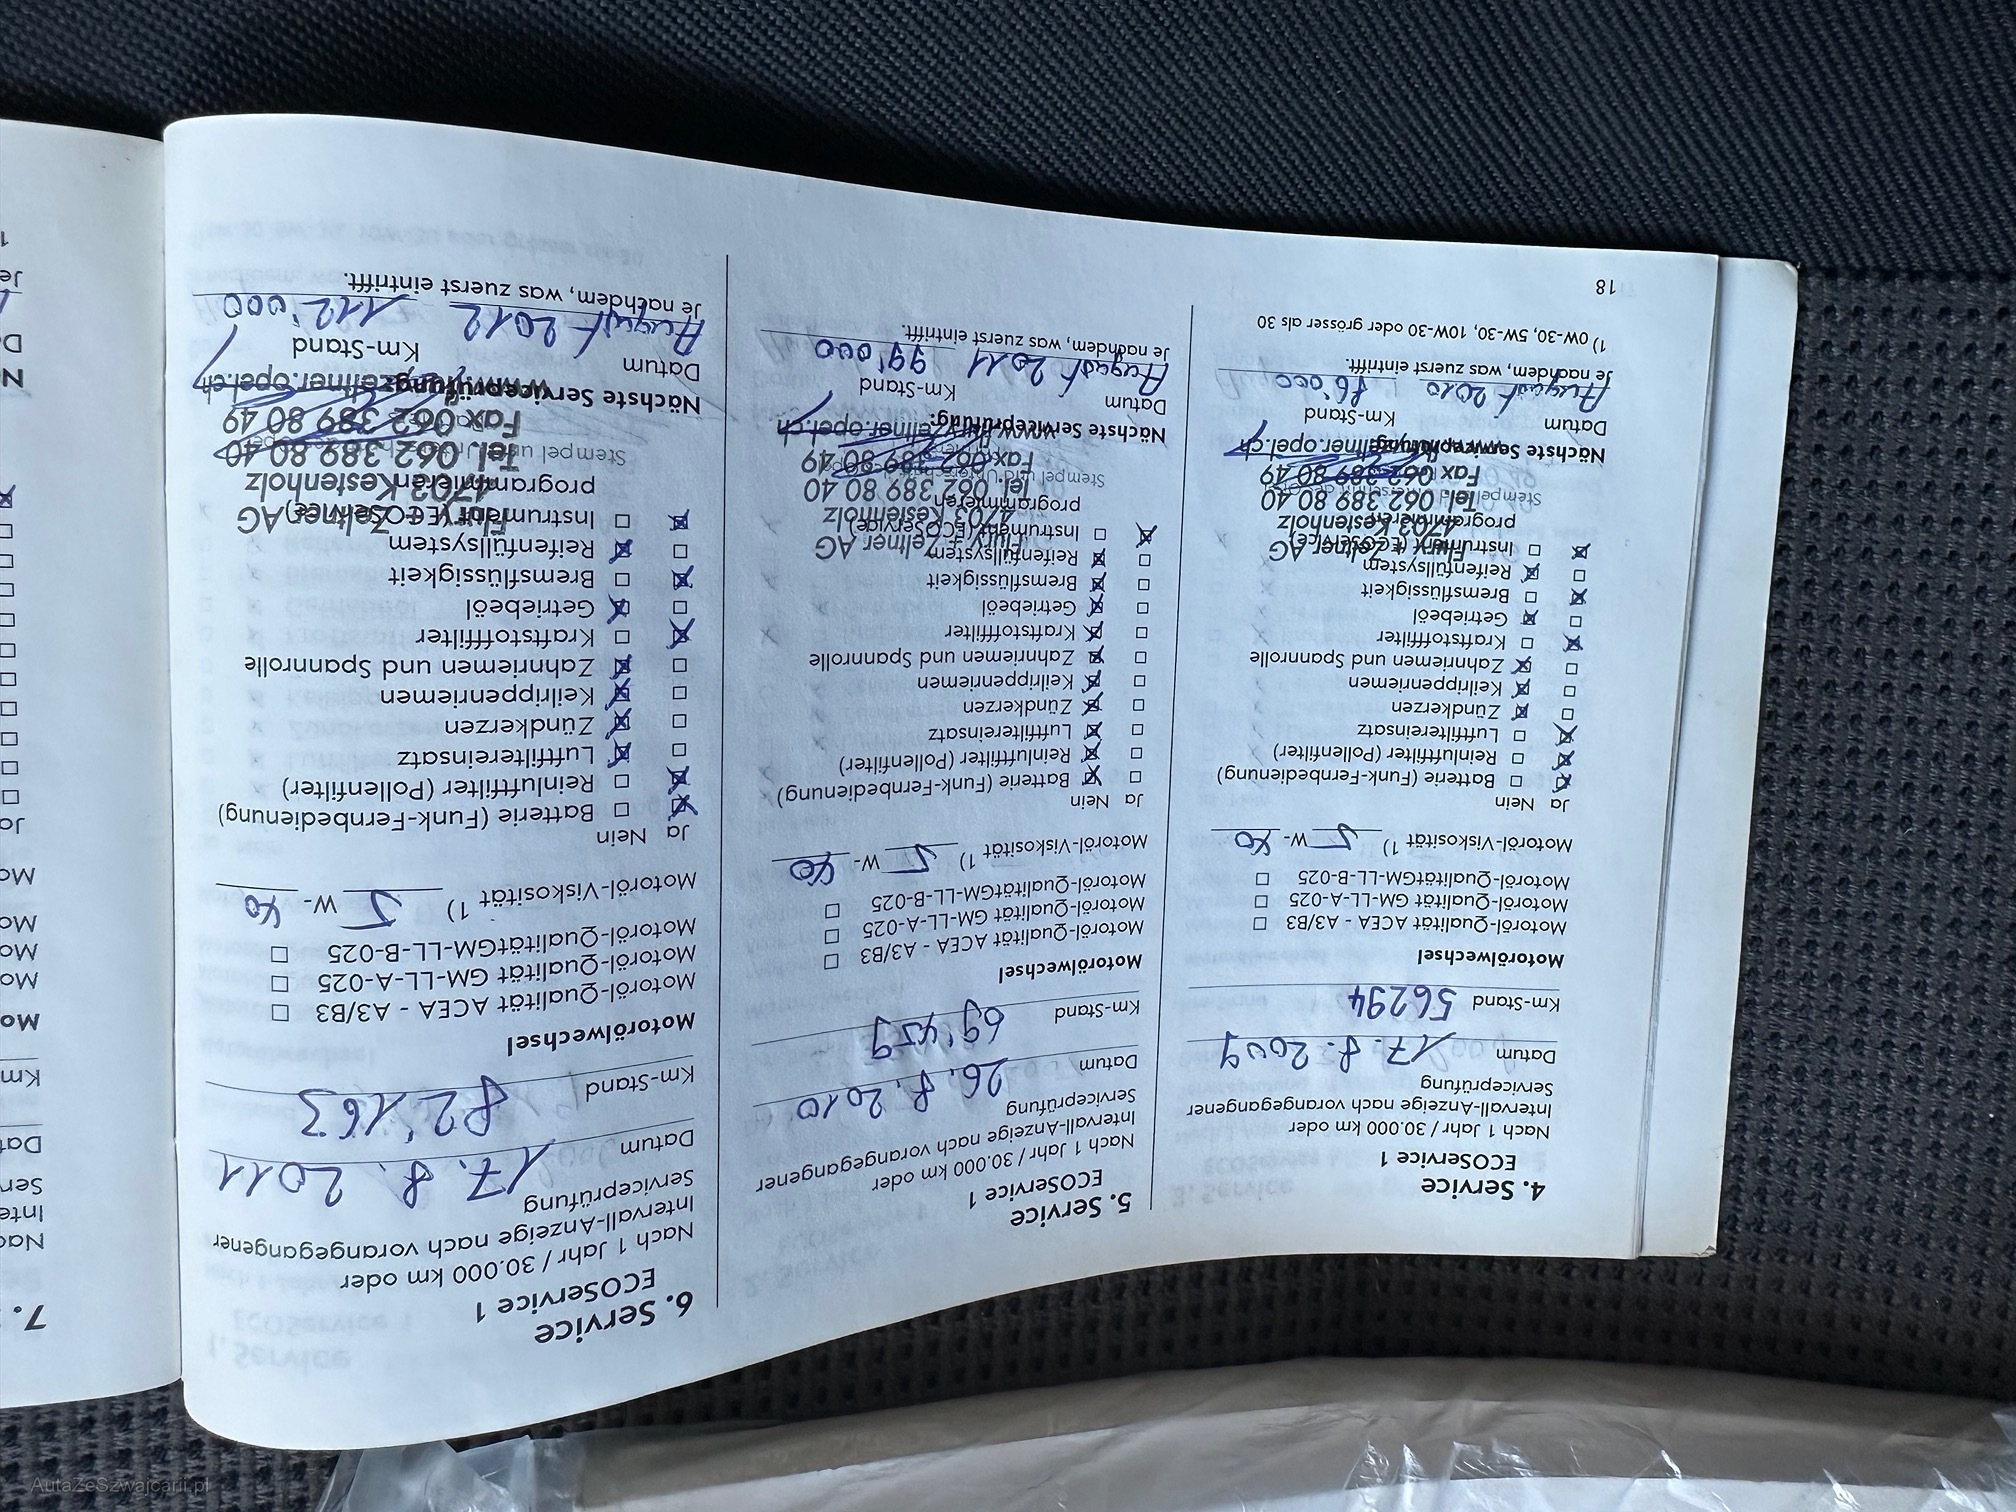 4. Service
ECOService 1
Nach 1 Jahr / 30.000 km oder
Intervall-Anzeige nach vorangegangener
Serviceprüfung
Datum 17. 8. 2009
Km-Stand 56294
Motorölwechsel
Motoröl-Qualität ACEA - A3/B3 ☐
Motoröl-Qualität GM-LL-A-025 ☐
Motoröl-QualitätGM-LL-B-025 ☐
Motoröl-Viskosität 1) 5 W- 40
Ja Nein
☒ ☐ Batterie (Funk-Fernbedienung)
☒ ☐ Reinluftfilter (Pollenfilter)
☒ ☐ Luftfiltereinsatz
☐ ☒ Zündkerzen
☐ ☒ Keilrippenriemen
☐ ☒ Zahnriemen und Spannrolle
☒ ☐ Kraftstofffilter
☐ ☒ Getriebeöl
☒ ☐ Bremsflüssigkeit
☐ ☒ Reifenfüllsystem
☒ ☐ Instrument (ECOService)
programmieren
Flury + Zeltner AG
4703 Kestenholz
Tel. 062 389 80 40
Fax 062 389 80 49
Stempel und
Nächste Serviceprüfung:
Datum Km-Stand
August 2010 86'000
Je nachdem, was zuerst eintrifft.
1) 0W-30, 5W-30, 10W-30 oder grösser als 30
18
5. Service
ECOService 1
Nach 1 Jahr / 30.000 km oder
Intervall-Anzeige nach vorangegangener
Serviceprüfung
Datum 26. 8. 2010
Km-Stand 69'459
Motorölwechsel
Motoröl-Qualität ACEA - A3/B3 ☐
Motoröl-Qualität GM-LL-A-025 ☐
Motoröl-QualitätGM-LL-B-025 ☐
Motoröl-Viskosität 1) 5 W- 40
Ja Nein
☐ ☒ Batterie (Funk-Fernbedienung)
☐ ☒ Reinluftfilter (Pollenfilter)
☐ ☒ Luftfiltereinsatz
☐ ☒ Zündkerzen
☐ ☒ Keilrippenriemen
☐ ☒ Zahnriemen und Spannrolle
☐ ☒ Kraftstofffilter
☐ ☒ Getriebeöl
☐ ☒ Bremsflüssigkeit
☐ ☒ Reifenfüllsystem
☒ ☐ Instrument (ECOService)
programmieren
Flury + Zeltner AG
4703 Kestenholz
Tel. 062 389 80 40
Fax 062 389 80 49
Stempel und
Nächste Serviceprüfung:
Datum Km-Stand
August 2011 99'000
Je nachdem, was zuerst eintrifft.
6. Service
ECOService 1
Nach 1 Jahr / 30.000 km oder
Intervall-Anzeige nach vorangegangener
Serviceprüfung
Datum 17. 8. 2011
Km-Stand 82'163
Motorölwechsel
Motoröl-Qualität ACEA - A3/B3 ☐
Motoröl-Qualität GM-LL-A-025 ☐
Motoröl-QualitätGM-LL-B-025 ☐
Motoröl-Viskosität 1) 5 W- 40
Ja Nein
☒ ☐ Batterie (Funk-Fernbedienung)
☒ ☐ Reinluftfilter (Pollenfilter)
☐ ☒ Luftfiltereinsatz
☐ ☒ Zündkerzen
☐ ☒ Keilrippenriemen
☐ ☒ Zahnriemen und Spannrolle
☒ ☐ Kraftstofffilter
☐ ☒ Getriebeöl
☒ ☐ Bremsflüssigkeit
☐ ☒ Reifenfüllsystem
☒ ☐ Instrument (ECOService)
programmieren
Flury + Zeltner AG
4703 Kestenholz
Tel. 062 389 80 40
Fax 062 389 80 49
Stempel und
Nächste Serviceprüfung:
Datum Km-Stand
August 2012 112'000
Je nachdem, was zuerst eintrifft.
7.
AutaZeSzwajcarii.pl